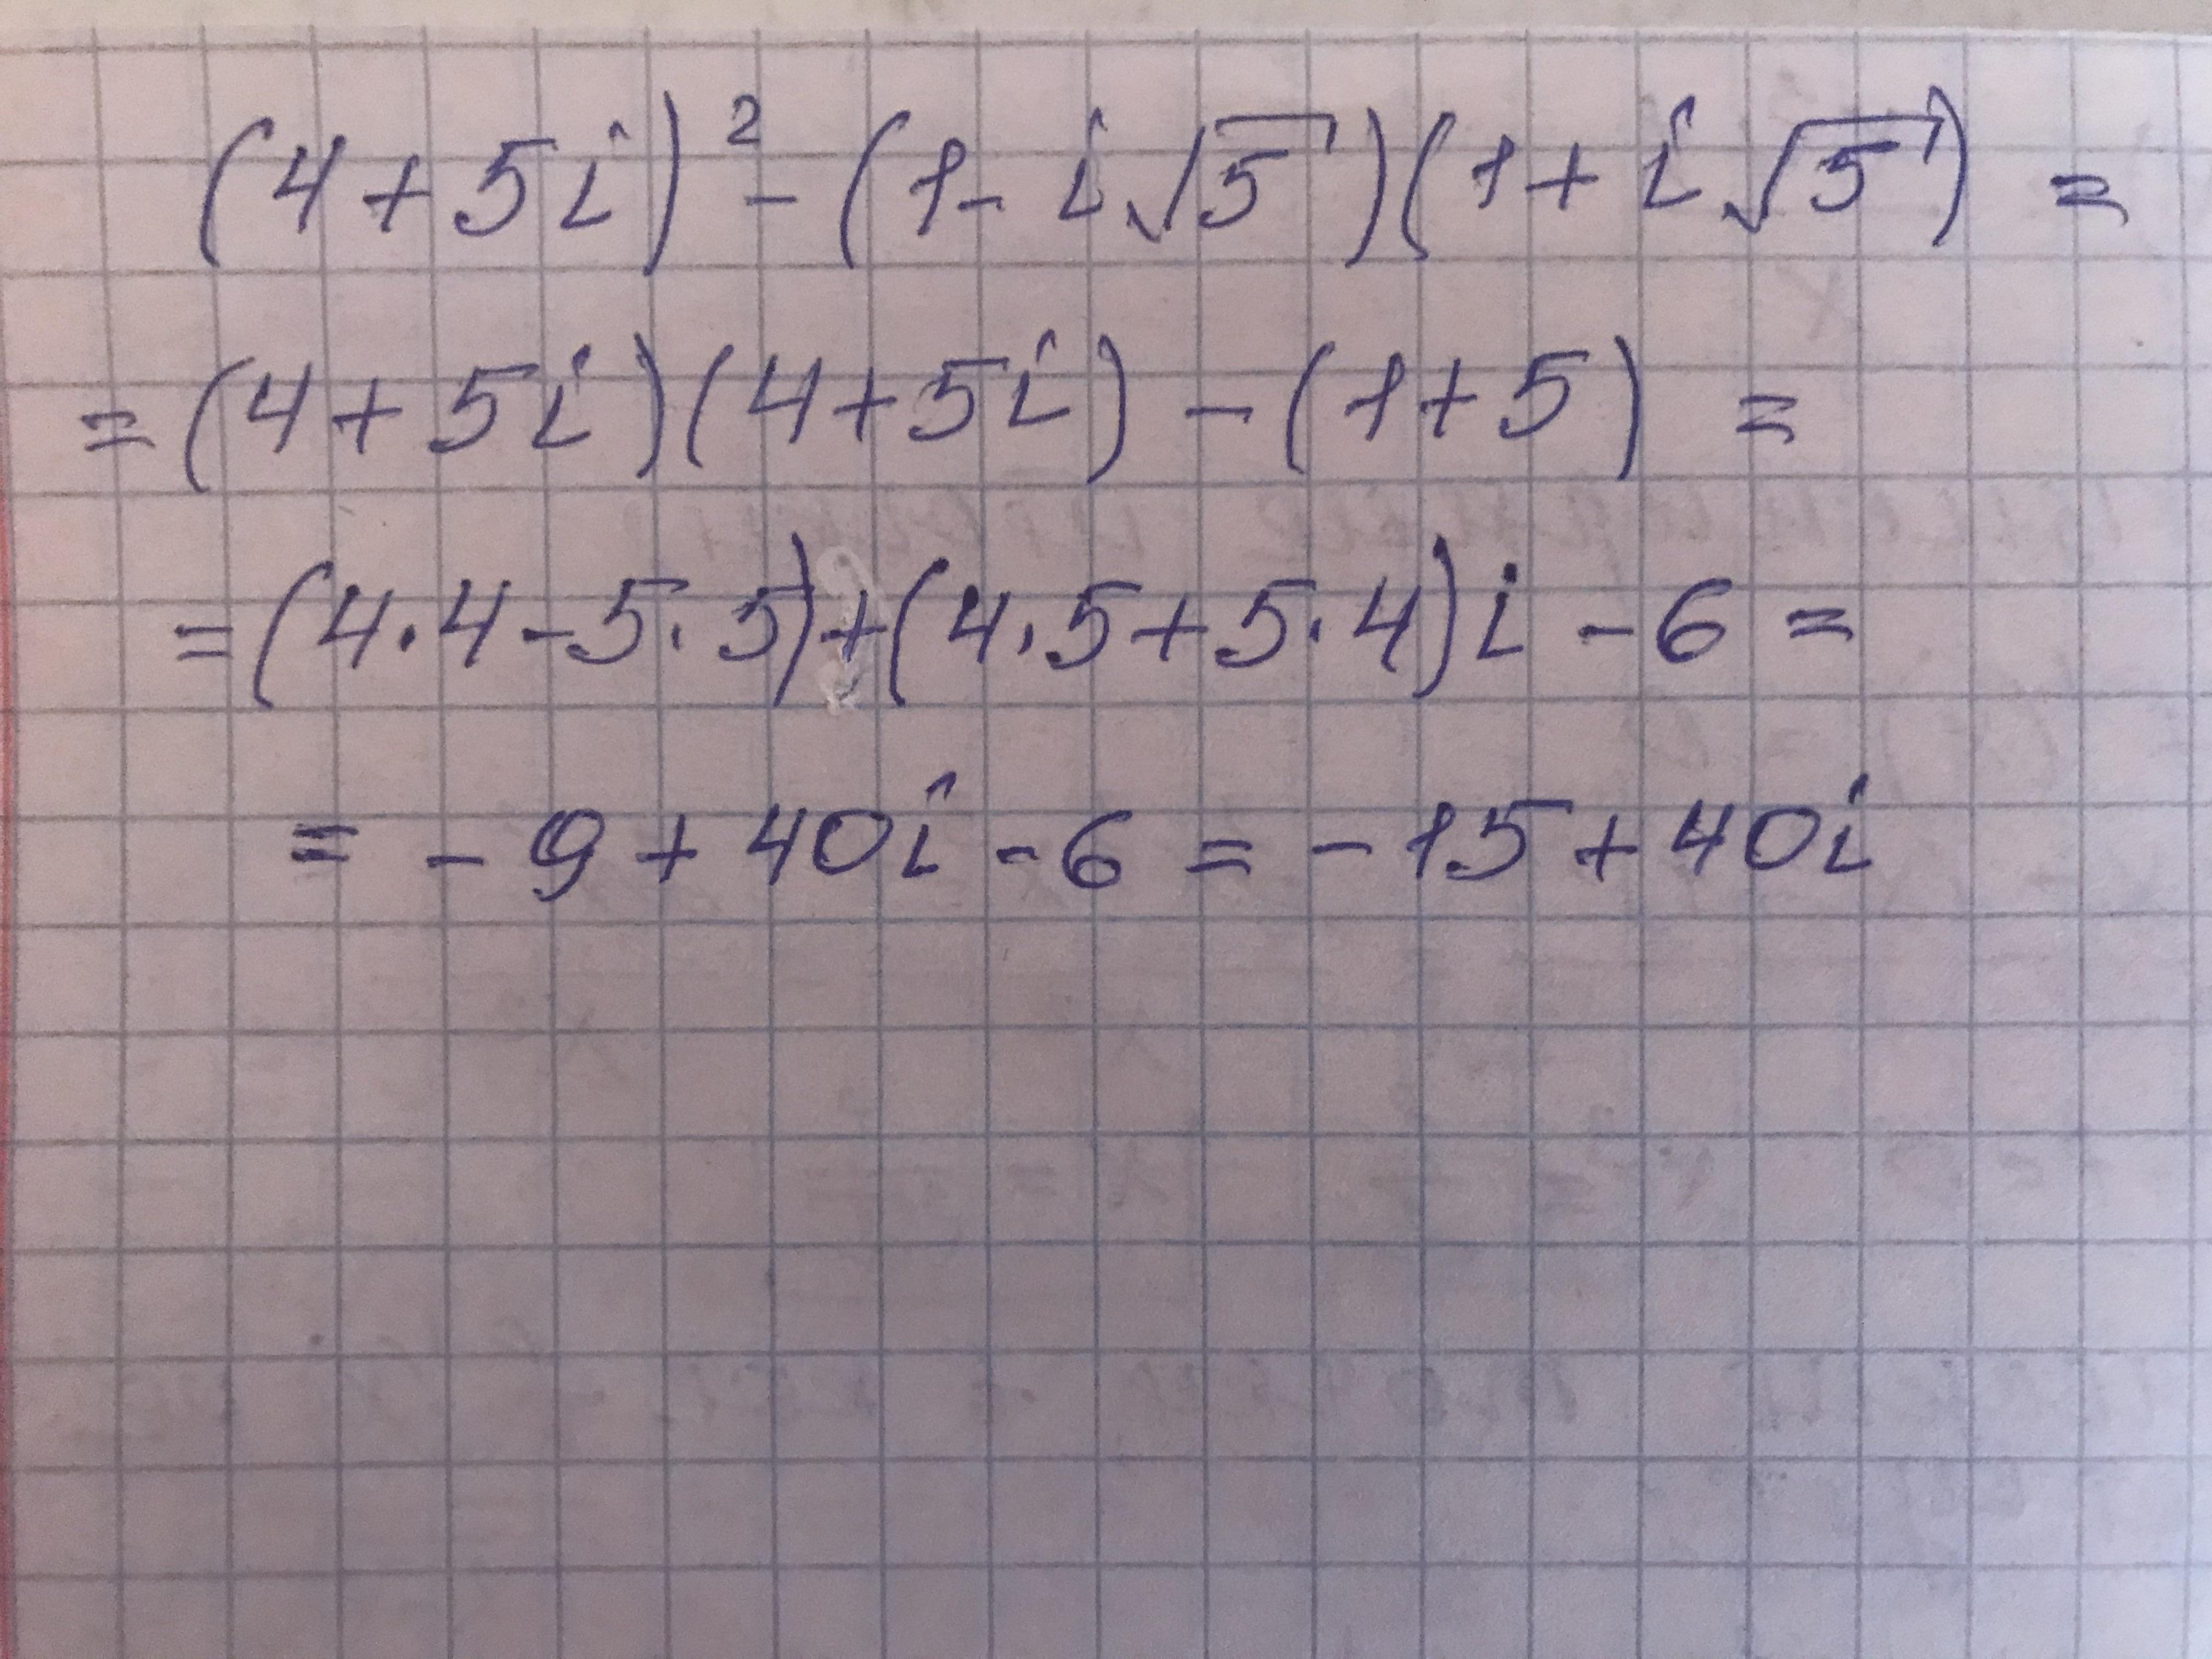 (4+5i)² - (1- i√5)(1+ i√5) =
= (4+5i)(4+5i) - (1+5) =
= (4·4-5·5)+(4·5+5·4)i - 6 =
= - 9 + 40i - 6 = - 15 + 40i